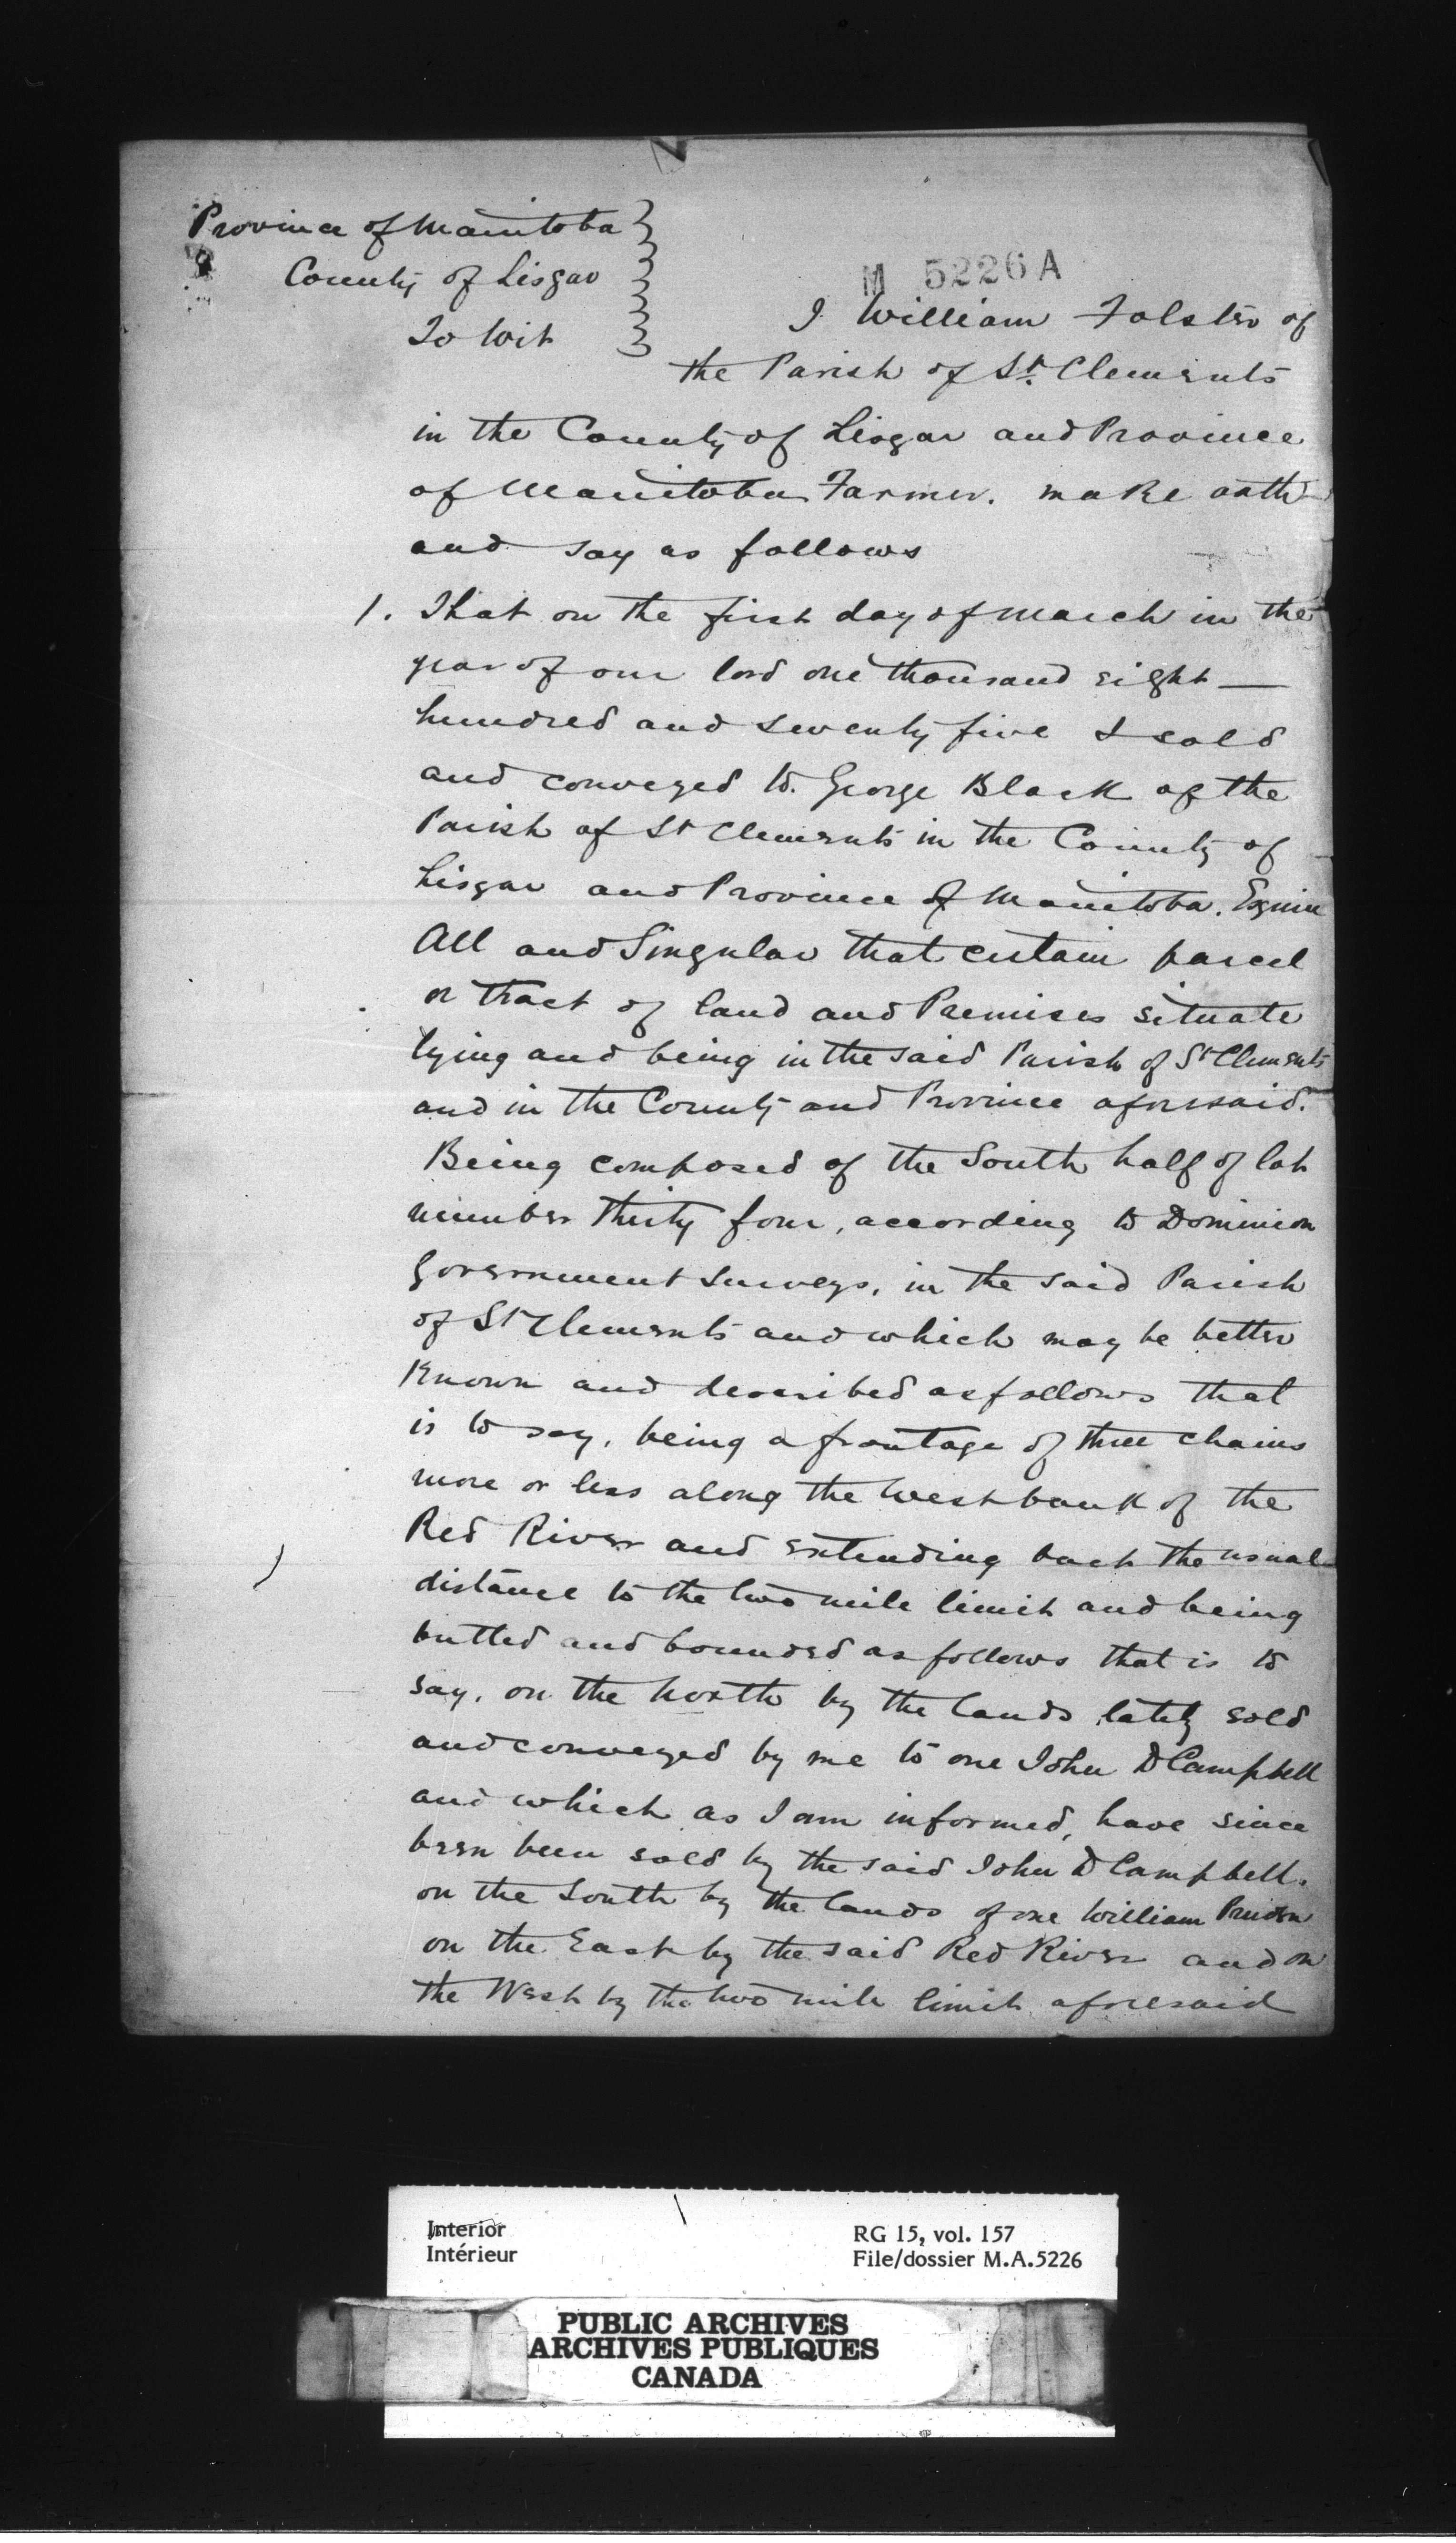 Province of Manitoba
County of Lisgar
To Wit
M 5226 A
I William Folster of
the Parish of St. Clements
in the County of Lisgar and Province
of Manitoba Farmer. make oath
and say as follows
1. That on the first day of March in the
year of our lord one thousand eight —
hundred and seventy five I sold
and conveyed to George Black of the
Parish of St Clements in the County of
Lisgar and Province of Manitoba. Esquire
All and Singular that certain parcel
or tract of land and Premises situate
lying and being in the said Parish of St Clements
and in the County and Province aforesaid.
Being composed of the South half of lot
number thirty four, according to Dominion
Government Surveys, in the said Parish
of St Clements and which may be better
Known and described as follows that
is to say, being a frontage of three chains
more or less along the West bank of the
Red River and extending back the usual
distance to the two mile limit and being
butted and bounded as follows that is to
say, on the North by the lands lately sold
and conveyed by me to one John D Campbell
and which as I am informed, have since
been been sold by the said John D Campbell.
on the South by the lands of one William Pruden
on the East by the said Red River and on
the West by the two mile limit aforesaid
Interior
Intérieur
RG 15, vol. 157
File/dossier M.A.5226
PUBLIC ARCHIVES
ARCHIVES PUBLIQUES
CANADA